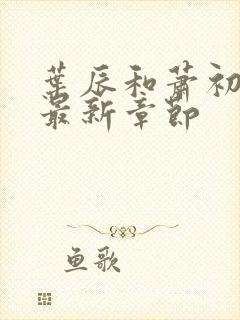 葉辰和蕭初
最新章節
鱼歌